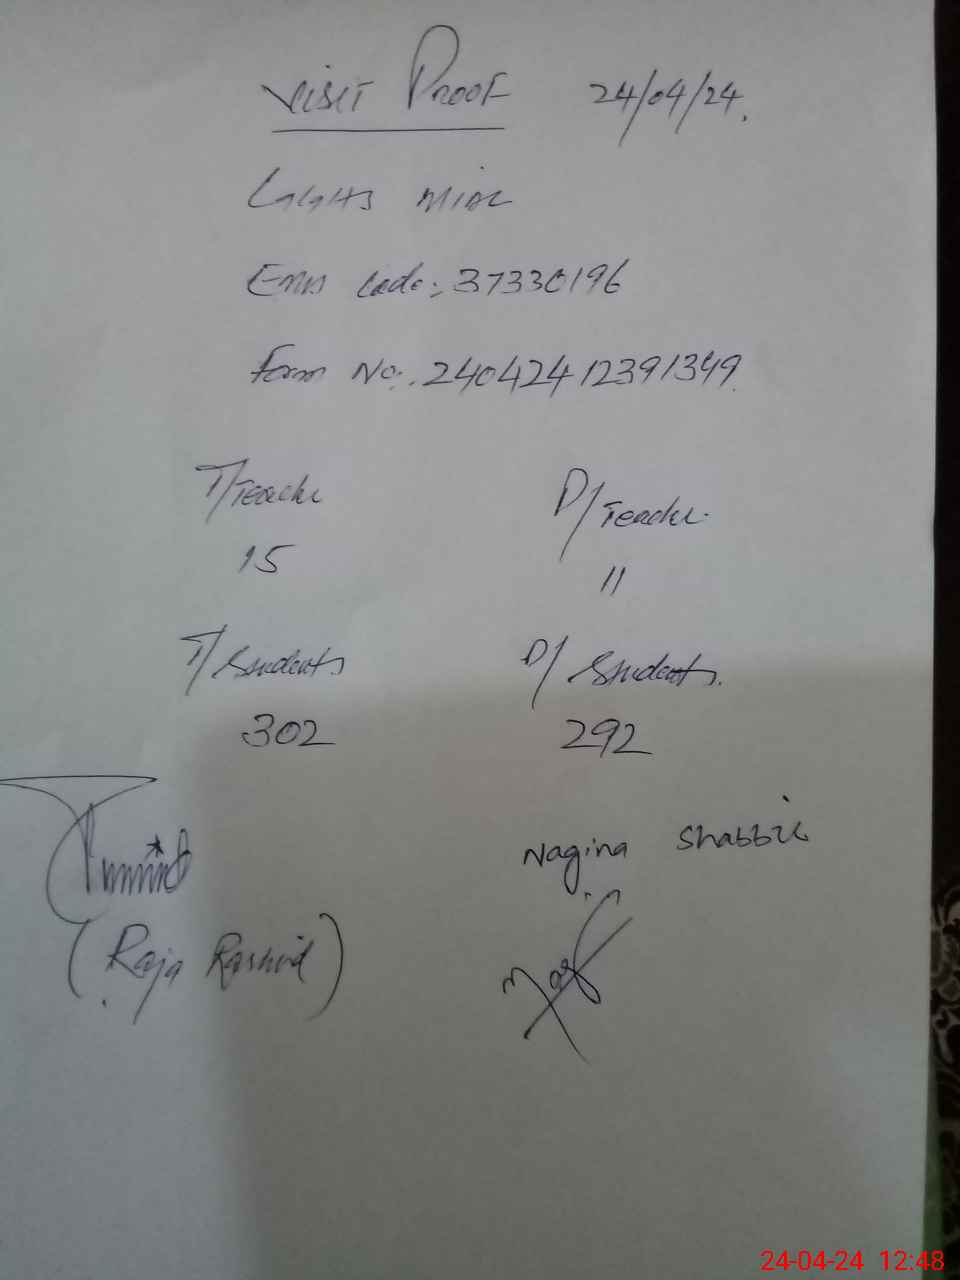 Visit Proof 24/04/24.
GGHS Mial
Emis Code: 37330196
Form No. 24042412391349
T/Teacher D/Teacher.
15 11
T/Students D/Students.
302 292
Nagina Shabbir
(Raja Rashid)
24-04-24 12:48